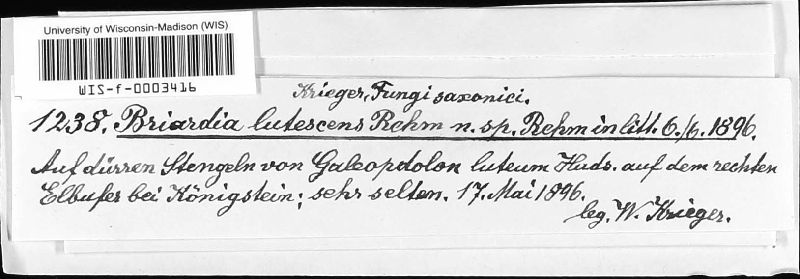 University of Wisconsin-Madison (WIS)
WIS-f-0003416
Krieger, Fungi saxonici.
1238. Briardia lutescens Rehm n. sp. Rehm in litt. 6./6. 1896.
Auf dürren Stengeln von Galeopdolon luteum Huds. auf dem rechten
Elbufer bei Königstein; sehr selten. 17. Mai 1896.
leg. W. Krieger.